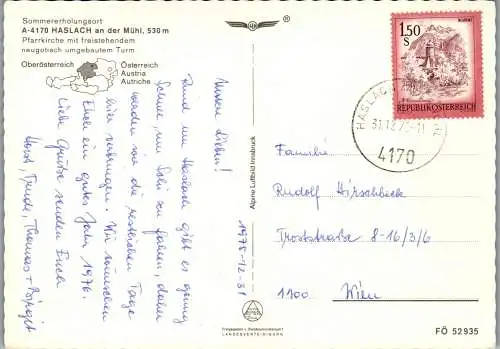 Sommererholungsort
A-4170 HASLACH an der Mühl, 538 m
Pfarrkirche mit freistehendem
neugotisch umgebautem Turm
Oberösterreich
Österreich
Austria
Autriche
®
1,50
S
REPUBLIK ÖSTERREICH
HASLACH
31.12.75-11
4170
Unsere Lieben!
Rund um Haslach gibt es genug
Schnee um Schi zu fahren, daher
werden wir die restlichen Tage
hier verbringen. Wir wünschen
Euch ein gutes Jahr 1976.
Liebe Grüße senden Euch
Horst, Trude, Thomas + Birgit
1975-12-31
Alpine Luftbild Innsbruck
Familie
Rudolf Hirschbeck
Troststraße 8-16/3/6
1100 Wien
FÖ 52935